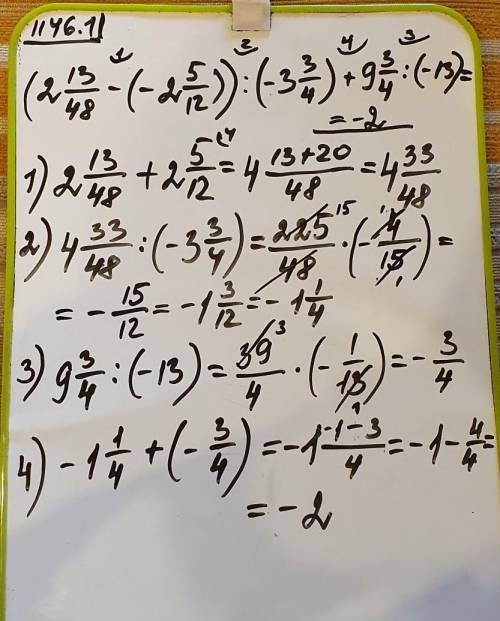 1146.1
(2 13/48 - (-2 5/12)) : (-3 3/4) + 9 3/4 : (-13) =
= -2
1) 2 13/48 + 2 5/12 = 4 13+20/48 = 4 33/48
2) 4 33/48 : (-3 3/4) = 225/48 · (-4/15) =
= -15/12 = -1 3/12 = -1 1/4
3) 9 3/4 : (-13) = 39/4 · (-1/13) = -3/4
4) -1 1/4 + (-3/4) = -1 -1-3/4 = -1 - 4/4 =
= -2